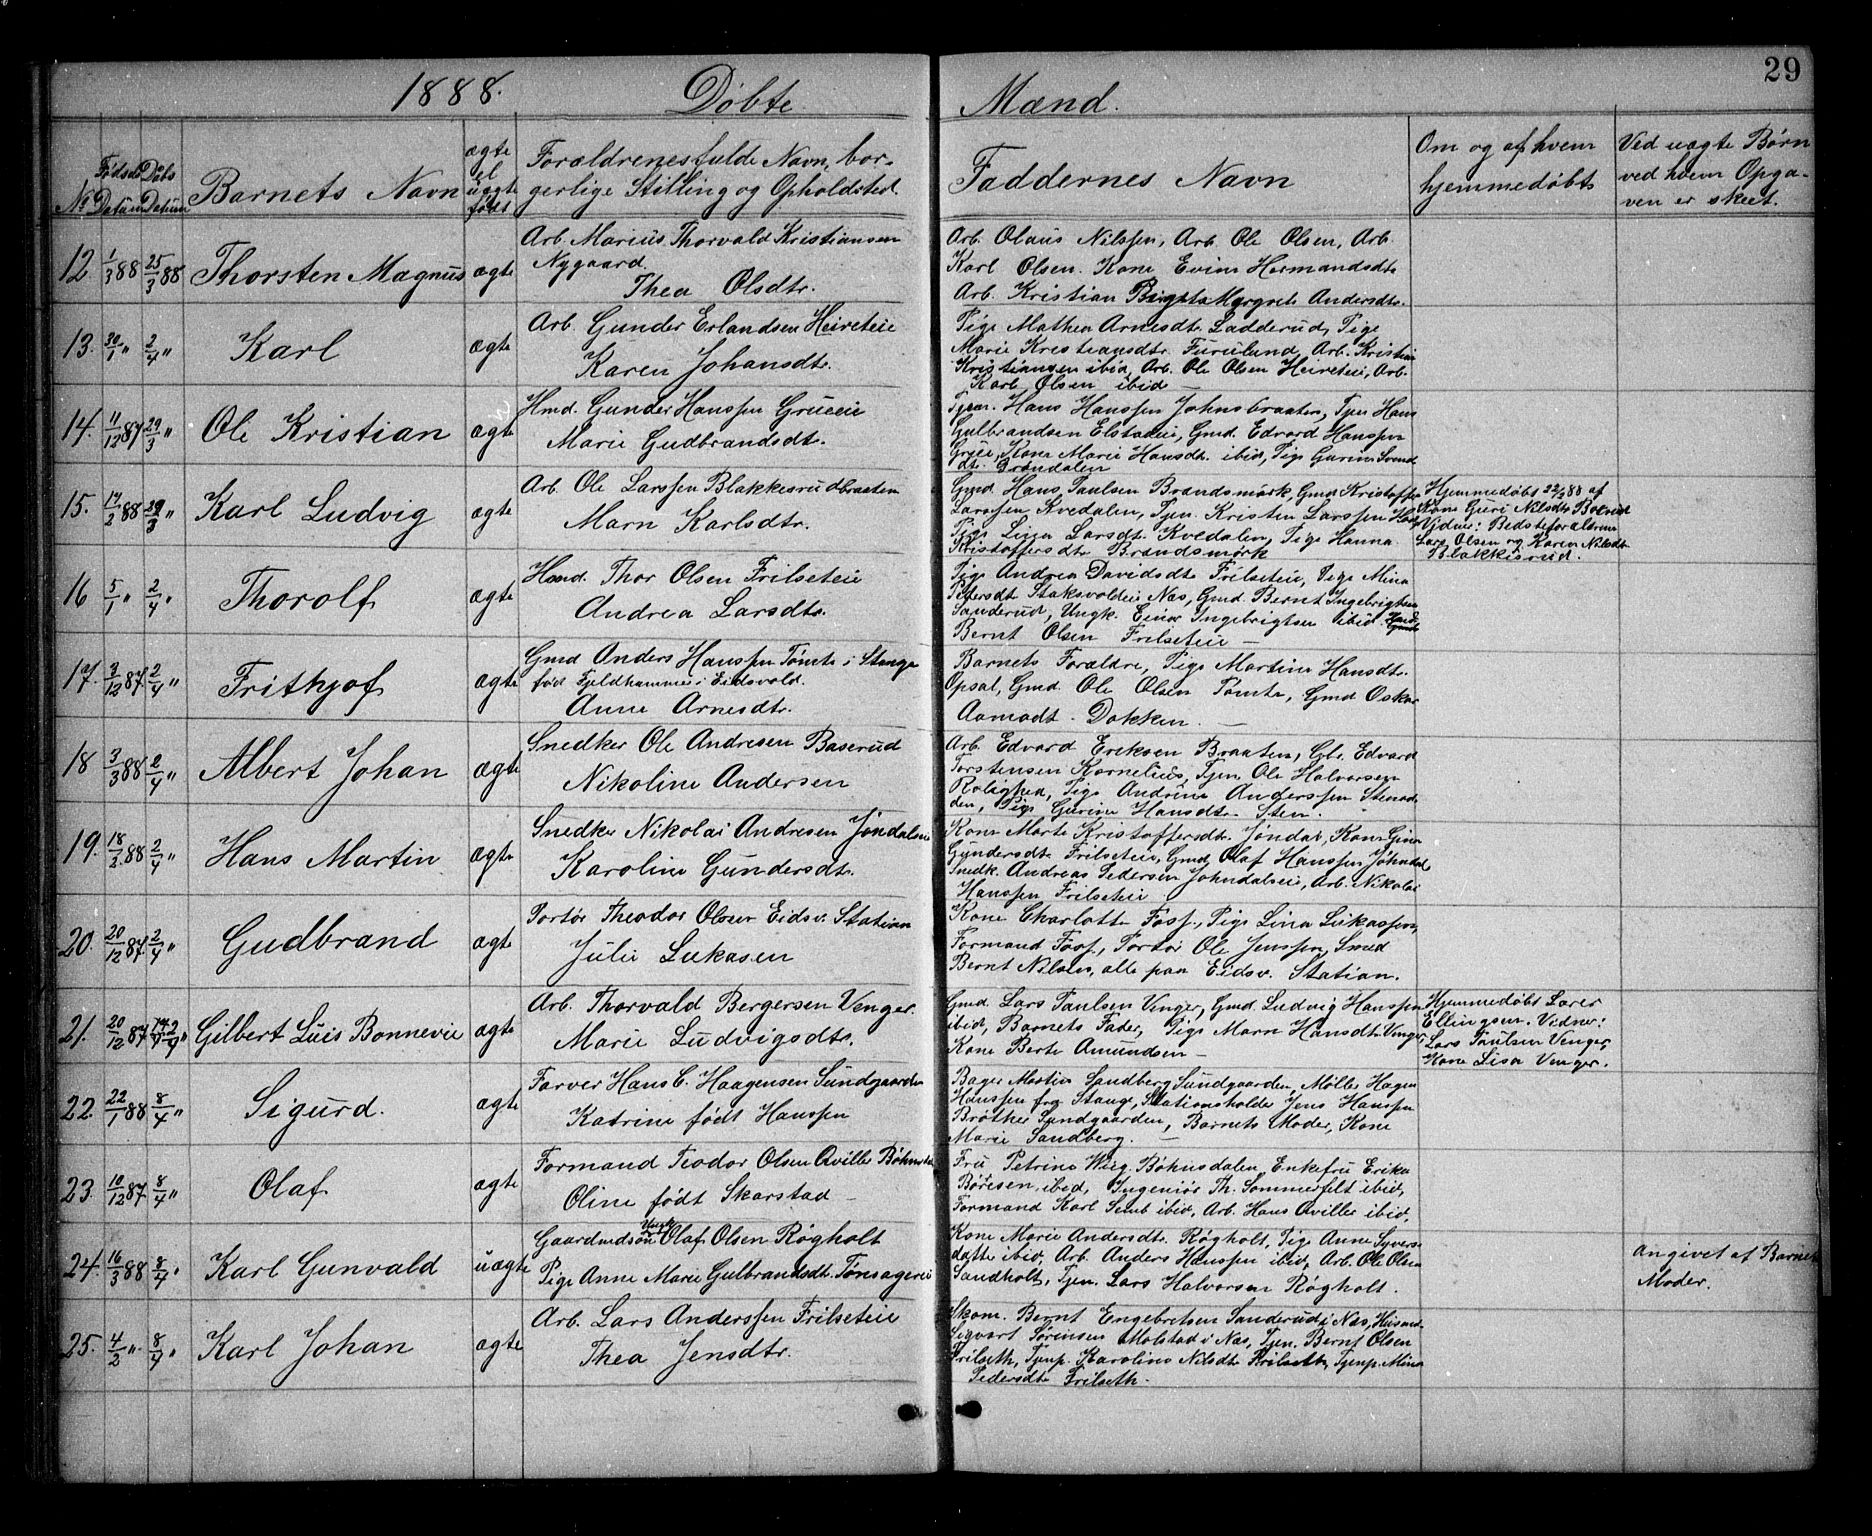 29
1888. Døbte Mænd.
No
Fødsels Datum
Døbs Datum
Barnets Navn
ægte el uægte født
Forældrenes fulde Navn, bor-
gerlige Stilling og Opholdsted.
Faddernes Navn
Om og af hvem
hjemmedøbt
Ved uægte Børn
ved hvem Opga-
ven er skeet.
12. 1/3 88 25/3 88 Thorsten Magnus ægte
Arb. Marius Thorvald Kristiansen
Nygaard
Thea Olsdtr.
Arb. Olaus Nilssen, Arb. Ole Olsen, Arb
Karl Olsen. Kone Evine Hermandsdtr
Arb. Kristian Margrete Andersdtr.
13. 30/1 " 2/4 " Karl ægte
Arb. Gunder Erlandsen Heireteie
Karen Johansdtr.
Pige Mathea Arnesdtr. Ladderud, Pige
Marie Kristiansdtr. Furulund, Arb. Kristian
Kristiansen ibid, Arb. Ole Olsen Heireteie, Arb.
Karl Olsen ibid —
14. 11/12 87 29/3 " Ole Kristian ægte
Hmd. Gunder Hanssen Grueeie
Marie Gudbrandsdtr.
Tjener. Hans Hanssen Johnsbraaten, Tjen Hans
Gulbrandsen Elstadeie, Gmd. Edvard Hanssen
Grueie, Kone Marie Hansdtr. ibid, Pige Gurine Svend
dtr. Brøndalen
15. 17/2 88 29/3 " Karl Ludvig ægte
Arb. Ole Larssen Blakkesrudbraaten
Marn Karlsdtr.
Gmd. Hans Paulsen Brandsmørk, Gmd Kristoffer
Larssen Kvedalen, Tjen. Kristen Larssen
Pige Lina Larsdt. Kvedalen, Pige Hanna
Kristoffersdtr Brandsmørk
Hjemmedøbt 22/2 88 af
Kone Guri Nilsdtr
Vidner: Bedsteforældrene
Lars Olsen og Karen Nilsdtr
Blakkisrud.
16 5/1 " 2/4 " Thorolf ægte
Hmd. Thor Olsen Frilseteie
Andrea Larsdtr.
Pige Andrea Davidsdtr Frilseteie, Pige Mina
Pedersdtr Staksvoldeie Næs, Gmd. Bernt Ingebrigtsen
Sanderud, Ungk. Einar Ingebrigtsen ibid
Bernt Olsen Frilseteie —
17. 3/12 87 2/4 " Frithjof ægte
Gmd Anders Hanssen Tømte i Stange
født Fjeldhammer i Eidsvold.
Anne Arnesdtr.
Barnets Forældre, Pige Martine Hansdtr.
Opsal, Gmd. Ole Olsen Tømte, Gmd Oskar
Aamodt - Dokken. —
18 3/3 88 2/4 " Albert Johan ægte
Snedker Ole Andresen Baserud
Nikoline Andersen
Arb. Edvard Eriksen Braaten, Gbr. Edvard
Torstensen Kornelius, Tjen. Ole Halvorsen
Rolighed, Pige Andrine Anderssen Stenød-
den, Pige Gurine Hansdtr. Sten.
19. 18/2 88 2/4 " Hans Martin ægte
Snedker Nikolai Andresen Jøndalseie
Karoline Gundersdtr.
Kone Marte Kristoffersdtr. Jøndal, Kone Gina
Gundersdtr Frilseteie, Gmd. Olaf Hanssen Jøhndal
Snedk. Andreas Pedersen Johndalseie, Arb. Nikolai
Hanssen Frilseteie
20. 20/12 87 2/4 " Gudbrand ægte
Portør Theodor Olsen Eidsv. Station
Julie Lukasen
Kone Charlotte Foss, Pige Lina Lukassen,
Formand Foss, Portør Ole Jenssen, Smed
Bernt Nilsen, alle paa Eidsv. Station.
21. 20/12 87 Gilbert Luis Bonnevie ægte
Arb. Thorvald Bergersen Venger.
Marie Ludvigsdtr.
Gmd. Lars Paulsen Venger, Gmd. Ludvig Hanssen
ibid, Barnets Fader, Pige Marn Hansdtr. Venger,
Kone Berte Amundsen —
Hjemmedøbt Lærer
Ellingsen. Vidner:
Lars Paulsen Venger,
Kone Lisa Venger.
22. 22/1 88 8/4 " Sigurd. ægte
Farver Hans C. Haagensen Sundgaarden
Katrine født Hanssen
Bager Martin Sandberg Sundgaarden, Møller Hagen
Hanssen fra Stange, Stationsholder Jens Hanssen
Brøther Sundgaarden, Barnets Moder, Kone
Marie Sandberg. —
23. 10/12 87 8/4 " Olaf ægte
Formand Teodor Olsen Qviller Bøhnsdal
Oline født Skarstad —
Fru Petrine Wiig Bøhnsdalen, Enkefru Erika
Børresen ibid, Ingeniør Th. Sommerfelt ibid,
Formand Karl Semb ibid, Arb. Hans Qviller ibid,
24. 16/3 88 8/4 " Karl Gunvald uægte
Gaardmdsøn Ungk. Olaf Olsen Røgholt
Pige Anne Marie Gulbrandsdtr. Tønsagereie
Kone Marie Andersdtr. Røgholt, Pige Anne Syvers-
datter ibid, Arb. Anders Hanssen ibid, Arb. Ole Olsen
Sandholt, Tjen. Lars Halvorsen Røgholt.
angivet af Barnets
Moder.
25. 4/2 " 8/4 " Karl Johan ægte
Arb. Lars Anderssen Frilseteie
Thea Jensdtr.
Skom. Bernt Engebretsen Sanderud i Næs, Husmd.
Sigvart Sørensen Molstad i Næs, Tjen. Bernt Olsen
Frilseth, Tjenp. Karoline Nilsdtr Frilseth, Tjenp. Mina
Pedersdtr Frilseth.